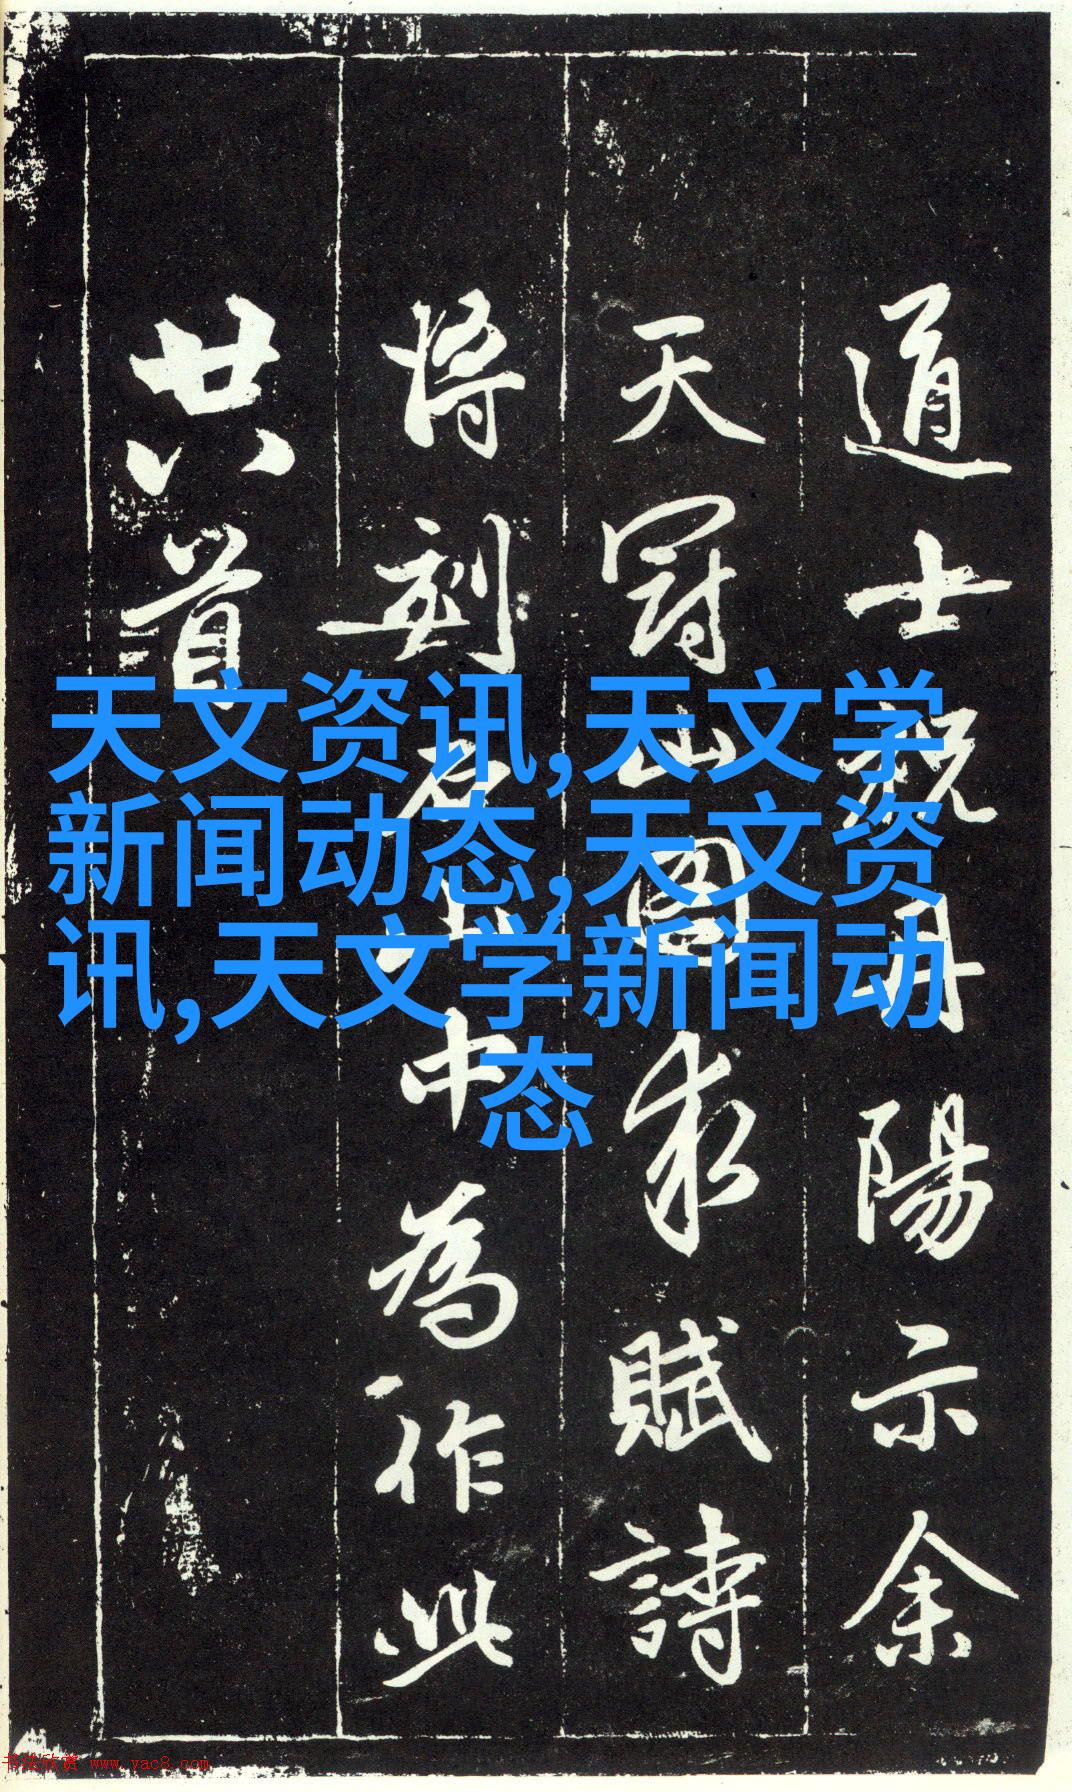 道士祝丹陽示余
天冠山圖求賦詩
將刻石山中為作此
廿八首
天文资讯,天文学
新闻动态,天文资
讯,天文学新闻动
态
书法欣赏 www.yac8.com